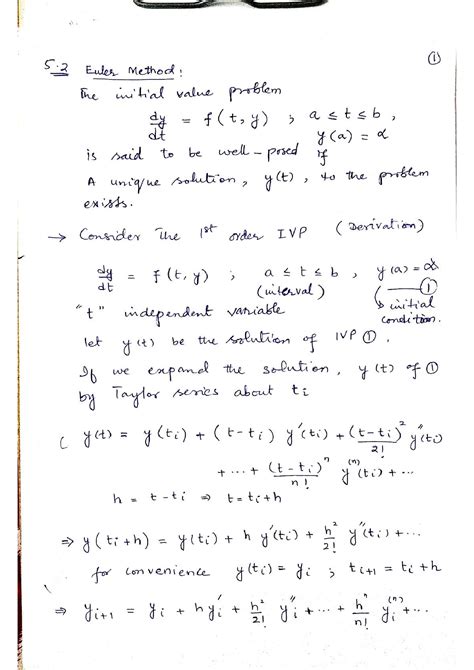 ①
5.2 Euler Method:
The initial value problem
dy/dt = f(t, y) ; a ≤ t ≤ b,
y(a) = α
is said to be well-posed if
A unique solution, y(t), to the problem
exists.
→ Consider the 1st order IVP (Derivation)
dy/dt = f(t, y) ; a ≤ t ≤ b, y(a) = α
(interval) ①
"t" independent variable ↳ initial condition.
let y(t) be the solution of IVP ①.
If we expand the solution, y(t) of ①
by Taylor series about ti
( y(t) = y(ti) + (t-ti) y'(ti) + (t-ti)²/2! y''(ti)
+ ... + (t-ti)ⁿ/n! y⁽ⁿ⁾(ti) + ...
h = t-ti ⇒ t = ti+h
⇒ y(ti+h) = y(ti) + h y'(ti) + h²/2! y''(ti) + ...
for convenience y(ti) = yi ; ti+1 = ti+h
⇒ yi+1 = yi + h yi' + h²/2! yi'' + ... + hⁿ/n! yi⁽ⁿ⁾ + ...